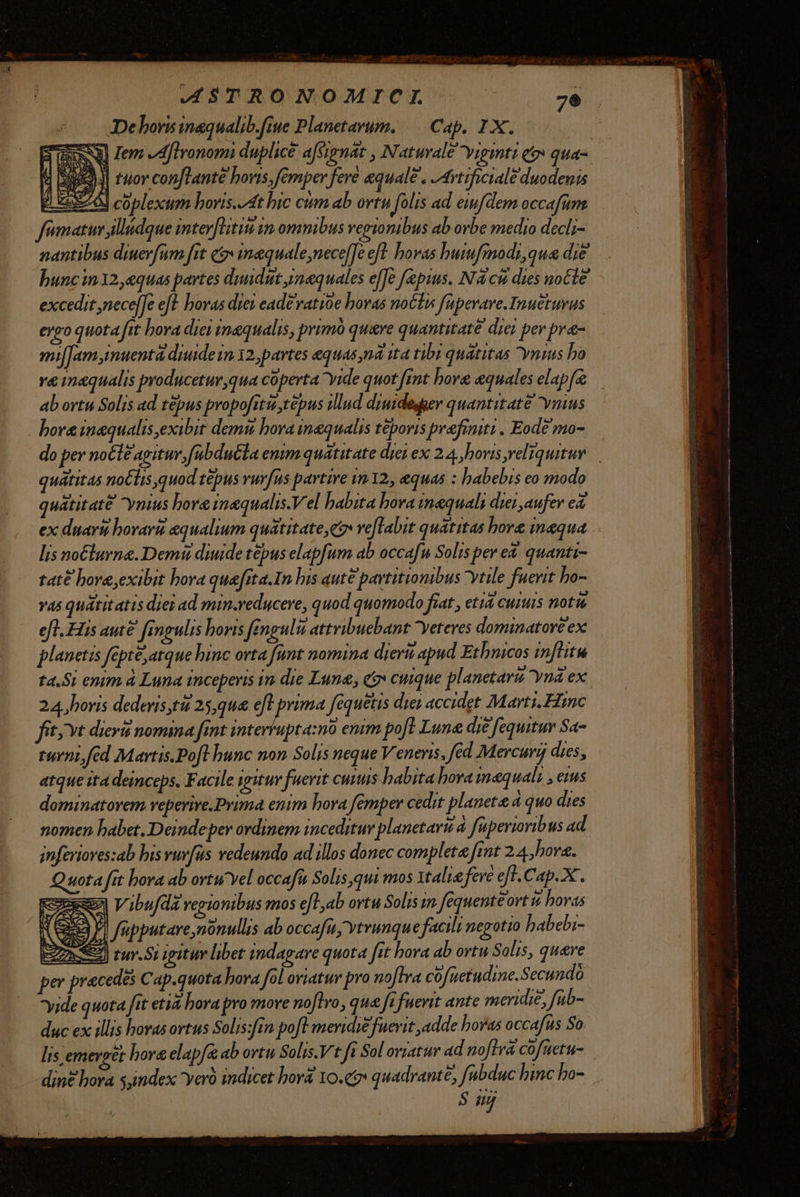 ASTRONOMICI 70
De horis inæqualib. siue Planetarum. Cap. IX.
Iem Astronomi duplicē assignāt, Naturalē viginti & qua-
tuor constantē horis, semper ferè æqualē. Artificialē duodenis
cōplexum horis. At hic cùm ab ortu solis ad eiusdem occasum
sumatur, illúdque interstitiū in omnibus regionibus ab orbe medio decli-
nantibus diuersum sit & inæquale, necesse est horas huiusmodi, quæ diē
hunc in 12, æquas partes diuidūt, inæquales esse sæpius. Nā cū dies noctē
excedit, necesse est horas diei eadē ratiōe horas noctis superare. Inuēturus
ergo quota sit hora diei inæqualis, primò quære quantitatē diei per præ-
missam, inuentā diuide in 12, partes æquas, nā ita tibi quātitas vnius ho
ræ inæqualis producetur, qua cōperta vide quot sint horæ æquales elapsæ
ab ortu Solis ad tēpus propositū, tēpus illud diuide per quantitatē vnius
horæ inæqualis, exibit demū hora inæqualis tēporis præfiniti. Eodē mo-
do per noctē agitur, subducta enim quātitate diei ex 24, horis, relīquitur
quātitas noctis, quod tēpus rursus partire in 12, æquas : habebis eo modo
quātitatē vnius horæ inæqualis. Vel habita hora inæquali diei, aufer eā
ex duarū horarū æqualium quātitate, & restabit quātitas horæ inæqua
lis nocturnæ. Demū diuide tēpus elapsum ab occasu Solis per eā quanti-
tatē horæ, exibit hora quæsita. In his autē partitionibus vtile fuerit ho-
ras quātitatis diei ad min. reducere, quod quomodo fiat, etiā cuiuis notū
est. His autē singulis horis singulū attribuebant veteres dominatorē ex
planetis septē, atque hinc orta sunt nomina dierū apud Ethnicos institu
ta. Si enim à Luna inceperis in die Lunæ, & cuique planetarū vnā ex
24, horis dederis, tū 25, quæ est prima sequētis diei accidet Marti. Hinc
fit, vt dierū nomina sint interrupta: nō enim post Lunæ diē sequitur Sa-
turni, sed Martis. Post hunc non Solis neque Veneris, sed Mercurij dies,
atque ita deinceps. Facile igitur fuerit cuiuis habita hora inæquali, eius
dominatorem reperire. Prima enim hora semper cedit planetæ à quo dies
nomen habet. Deinde per ordinem inceditur planetarū à superioribus ad
inferiores: ab his rursus redeundo ad illos donec completæ sint 24, horæ.
Quota sit hora ab ortu vel occasu Solis, qui mos Italiæ ferè est. Cap. X.
Vibusdā regionibus mos est, ab ortu Solis in sequentē ortū horas
supputare, nōnullis ab occasu, vtrunque facili negotio habebi-
tur. Si igitur libet indagare quota sit hora ab ortu Solis, quære
per præcedēs Cap. quota hora sol oriatur pro nostra cōsuetudine. Secundò
vide quota sit etiā hora pro more nostro, quæ si fuerit ante meridiē, sub-
duc ex illis horas ortus Solis: sin post meridiē fuerit, adde horas occasus So
lis, emergēt horæ elapsæ ab ortu Solis. Vt si Sol oriatur ad nostrā cōsuetu-
dinē hora 5, index verò indicet horā 10. & quadrantē, subduc hinc ho-
S iiij